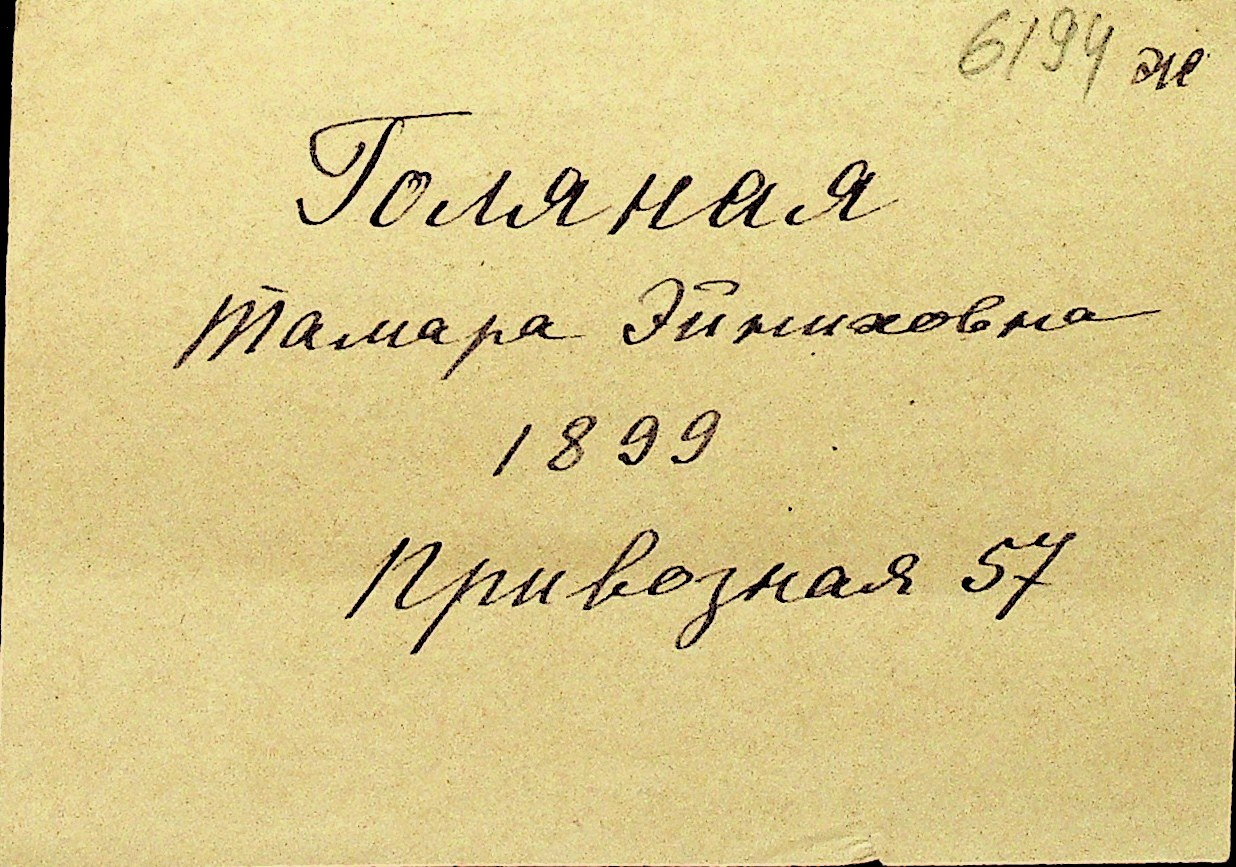 6194 ж
Голяная
Тамара Эйниховна
1899
Привозная 57